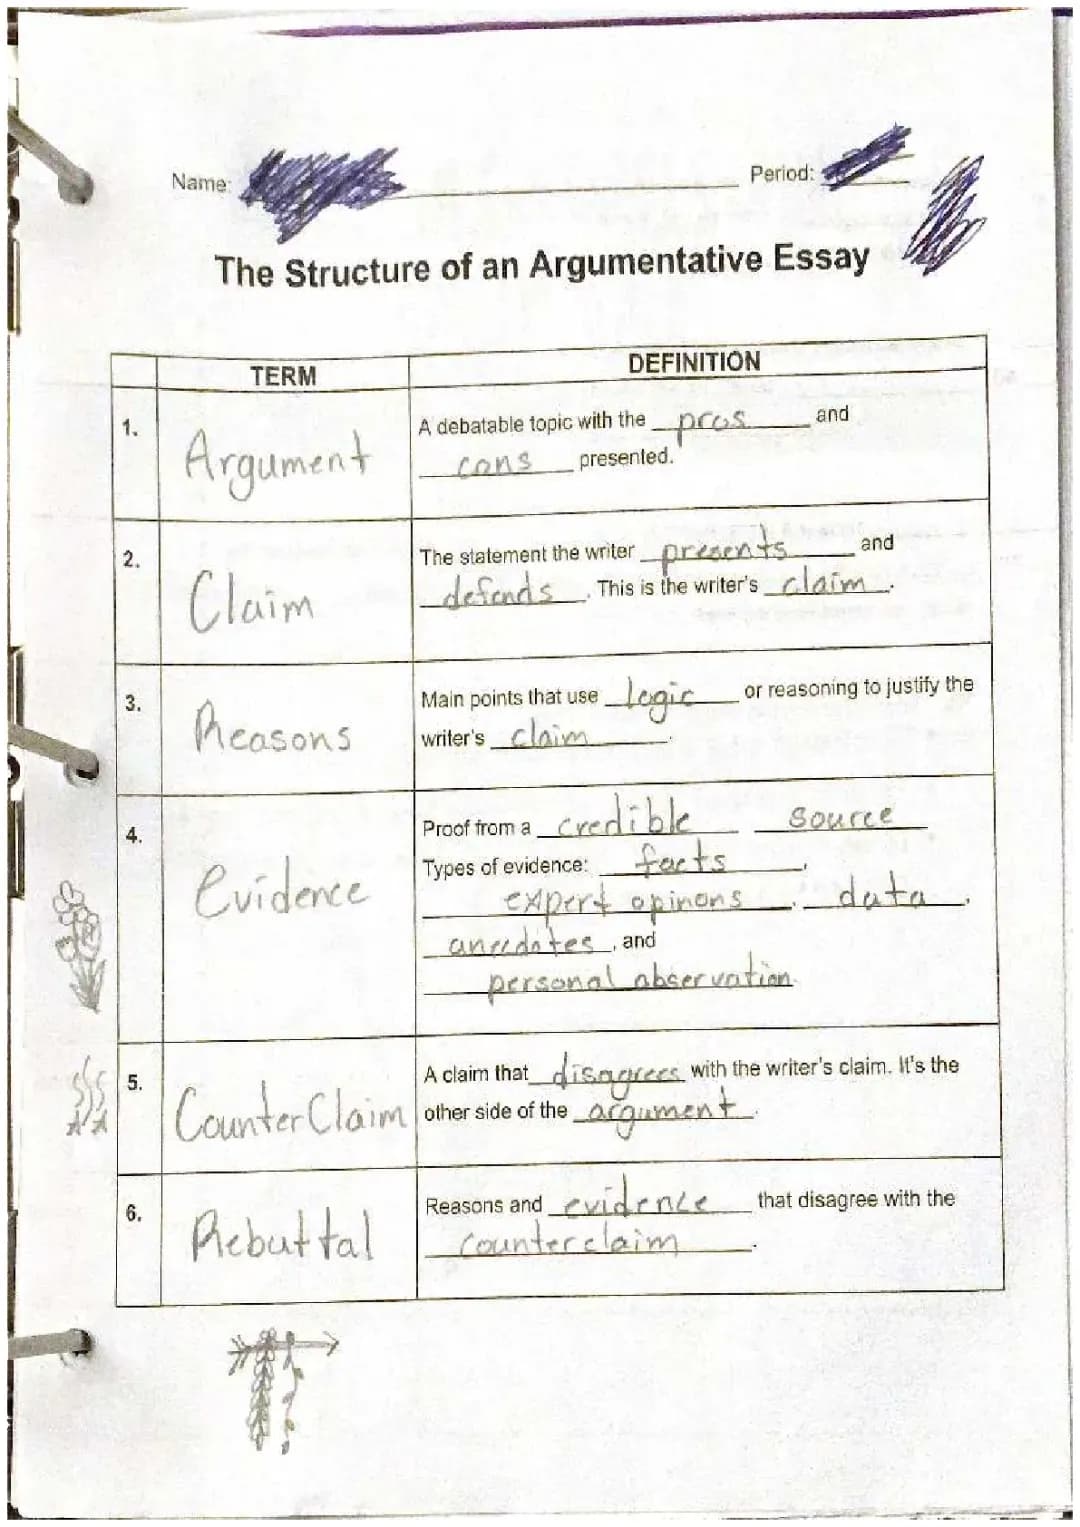 Name:
Period:
The Structure of an Argumentative Essay
TERM
DEFINITION
1.
Argument
A debatable topic with the pros and
cons presented.
2.
Claim
The statement the writer presents and
defends. This is the writer's claim.
3.
Reasons
Main points that use logic or reasoning to justify the
writer's claim.
4.
Evidence
Proof from a credible source
Types of evidence: facts,
expert opinons, data,
anecdotes, and
personal observation.
5.
CounterClaim
A claim that disagrees with the writer's claim. It's the
other side of the argument.
6.
Rebuttal
Reasons and evidence that disagree with the
counterclaim.